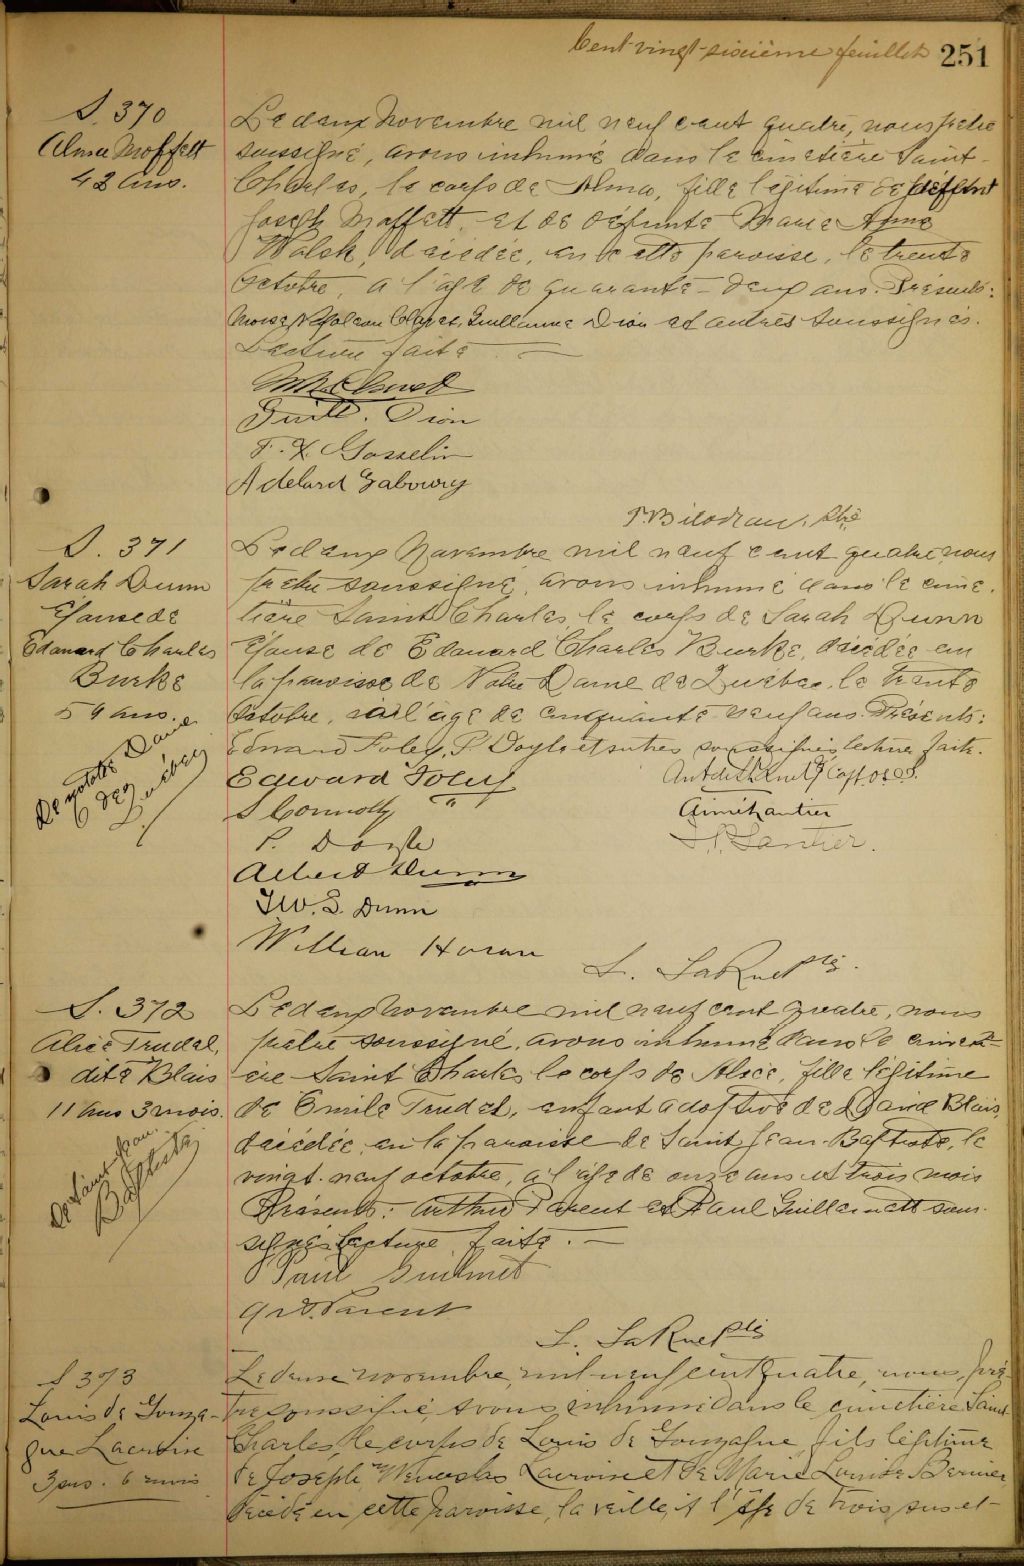 Cent-vingt-sixième feuillet 251
S. 370
Alma Moffett
42 ans.
Le deux Novembre mil neuf cent quatre, nous prêtre
soussigné, avons inhumé dans le cimetière Saint-
Charles, le corps de Alma, fille légitime de défunt
Joseph Moffett et de défunte Marie Anne
Walsh, décédée, en cette paroisse, le trente
octobre, a l'age de quarante-deux ans. Présents:
Moise Napoléon Guillaume Dion et autres soussignés.
Lecture faite
Guill. Dion
F. X. Gosselin
Adelard Gaboury
P. Bilodeau, Ptre
S. 371
Sarah Dunn
Epouse de
Edouard Charles
Burke
59 ans.
De Notre Dame
de
Québec
Le deux Novembre mil neuf cent quatre, nous
prêtre soussigné, avons inhumé dans le cime-
tière Saint Charles, le corps de Sarah Dunn
épouse de Edouard Charles Burke, décédée en
la paroisse de Notre Dame de Quebec, le trente
octobre, à l'âge de cinquante-neuf ans. Présents:
Edward Foley, P. Doyle et autres soussignés lecture faite.
Edward Foley
S Connolly
P. Doyle
Albert Dunn
T.W.S. Dunn
William Horan
L. LaRue ptre.
S. 372
Alice Trudel,
dite Blais
11 ans 3 mois.
De Saint-Jean
Baptiste
Le deux Novembre mil neuf cent quatre, nous
prêtre soussigné, avons inhumé dans le cimeti-
ère Saint Charles le corps de Alice, fille légitime
de Emile Trudel, enfant adoptive de David Blais,
décédée, en la paroisse de Saint Jean-Baptiste, le
vingt-neuf octobre, a l'age de onze ans et trois mois
Présents: Arthur Parent et Paul Guillemett sous-
signés lecture faite. —
Paul Guilmet
Art. Parent
L. LaRue ptre
S 373
Louis de Gonza-
gue Lacroix
3 ans. 6 mois
Le deux novembre, mil-neuf cent quatre, nous, prê-
tre soussigné, avons inhumé dans le cimetière Saint
Charles, le corps de Louis de Gonzague, fils légitime
de Joseph Wenceslas Lacroix et de Marie Louise Bernier,
décédé en cette paroisse, la veille, à l'âge de trois ans et-